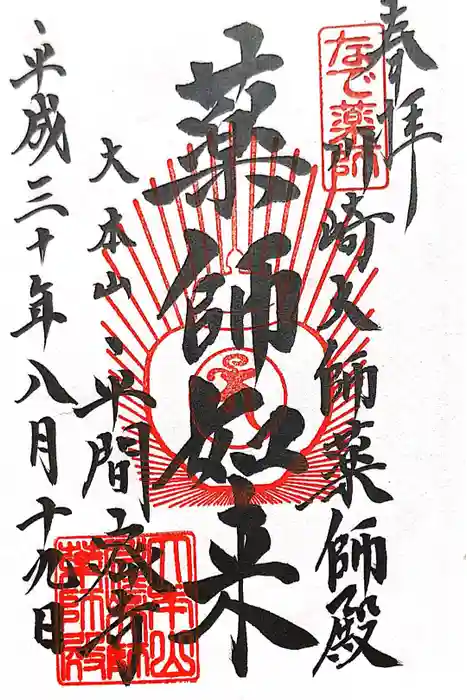 奉拝
なで薬師
川崎大師薬師殿
薬師如来
大本山
平間寺
平成三十年八月十九日